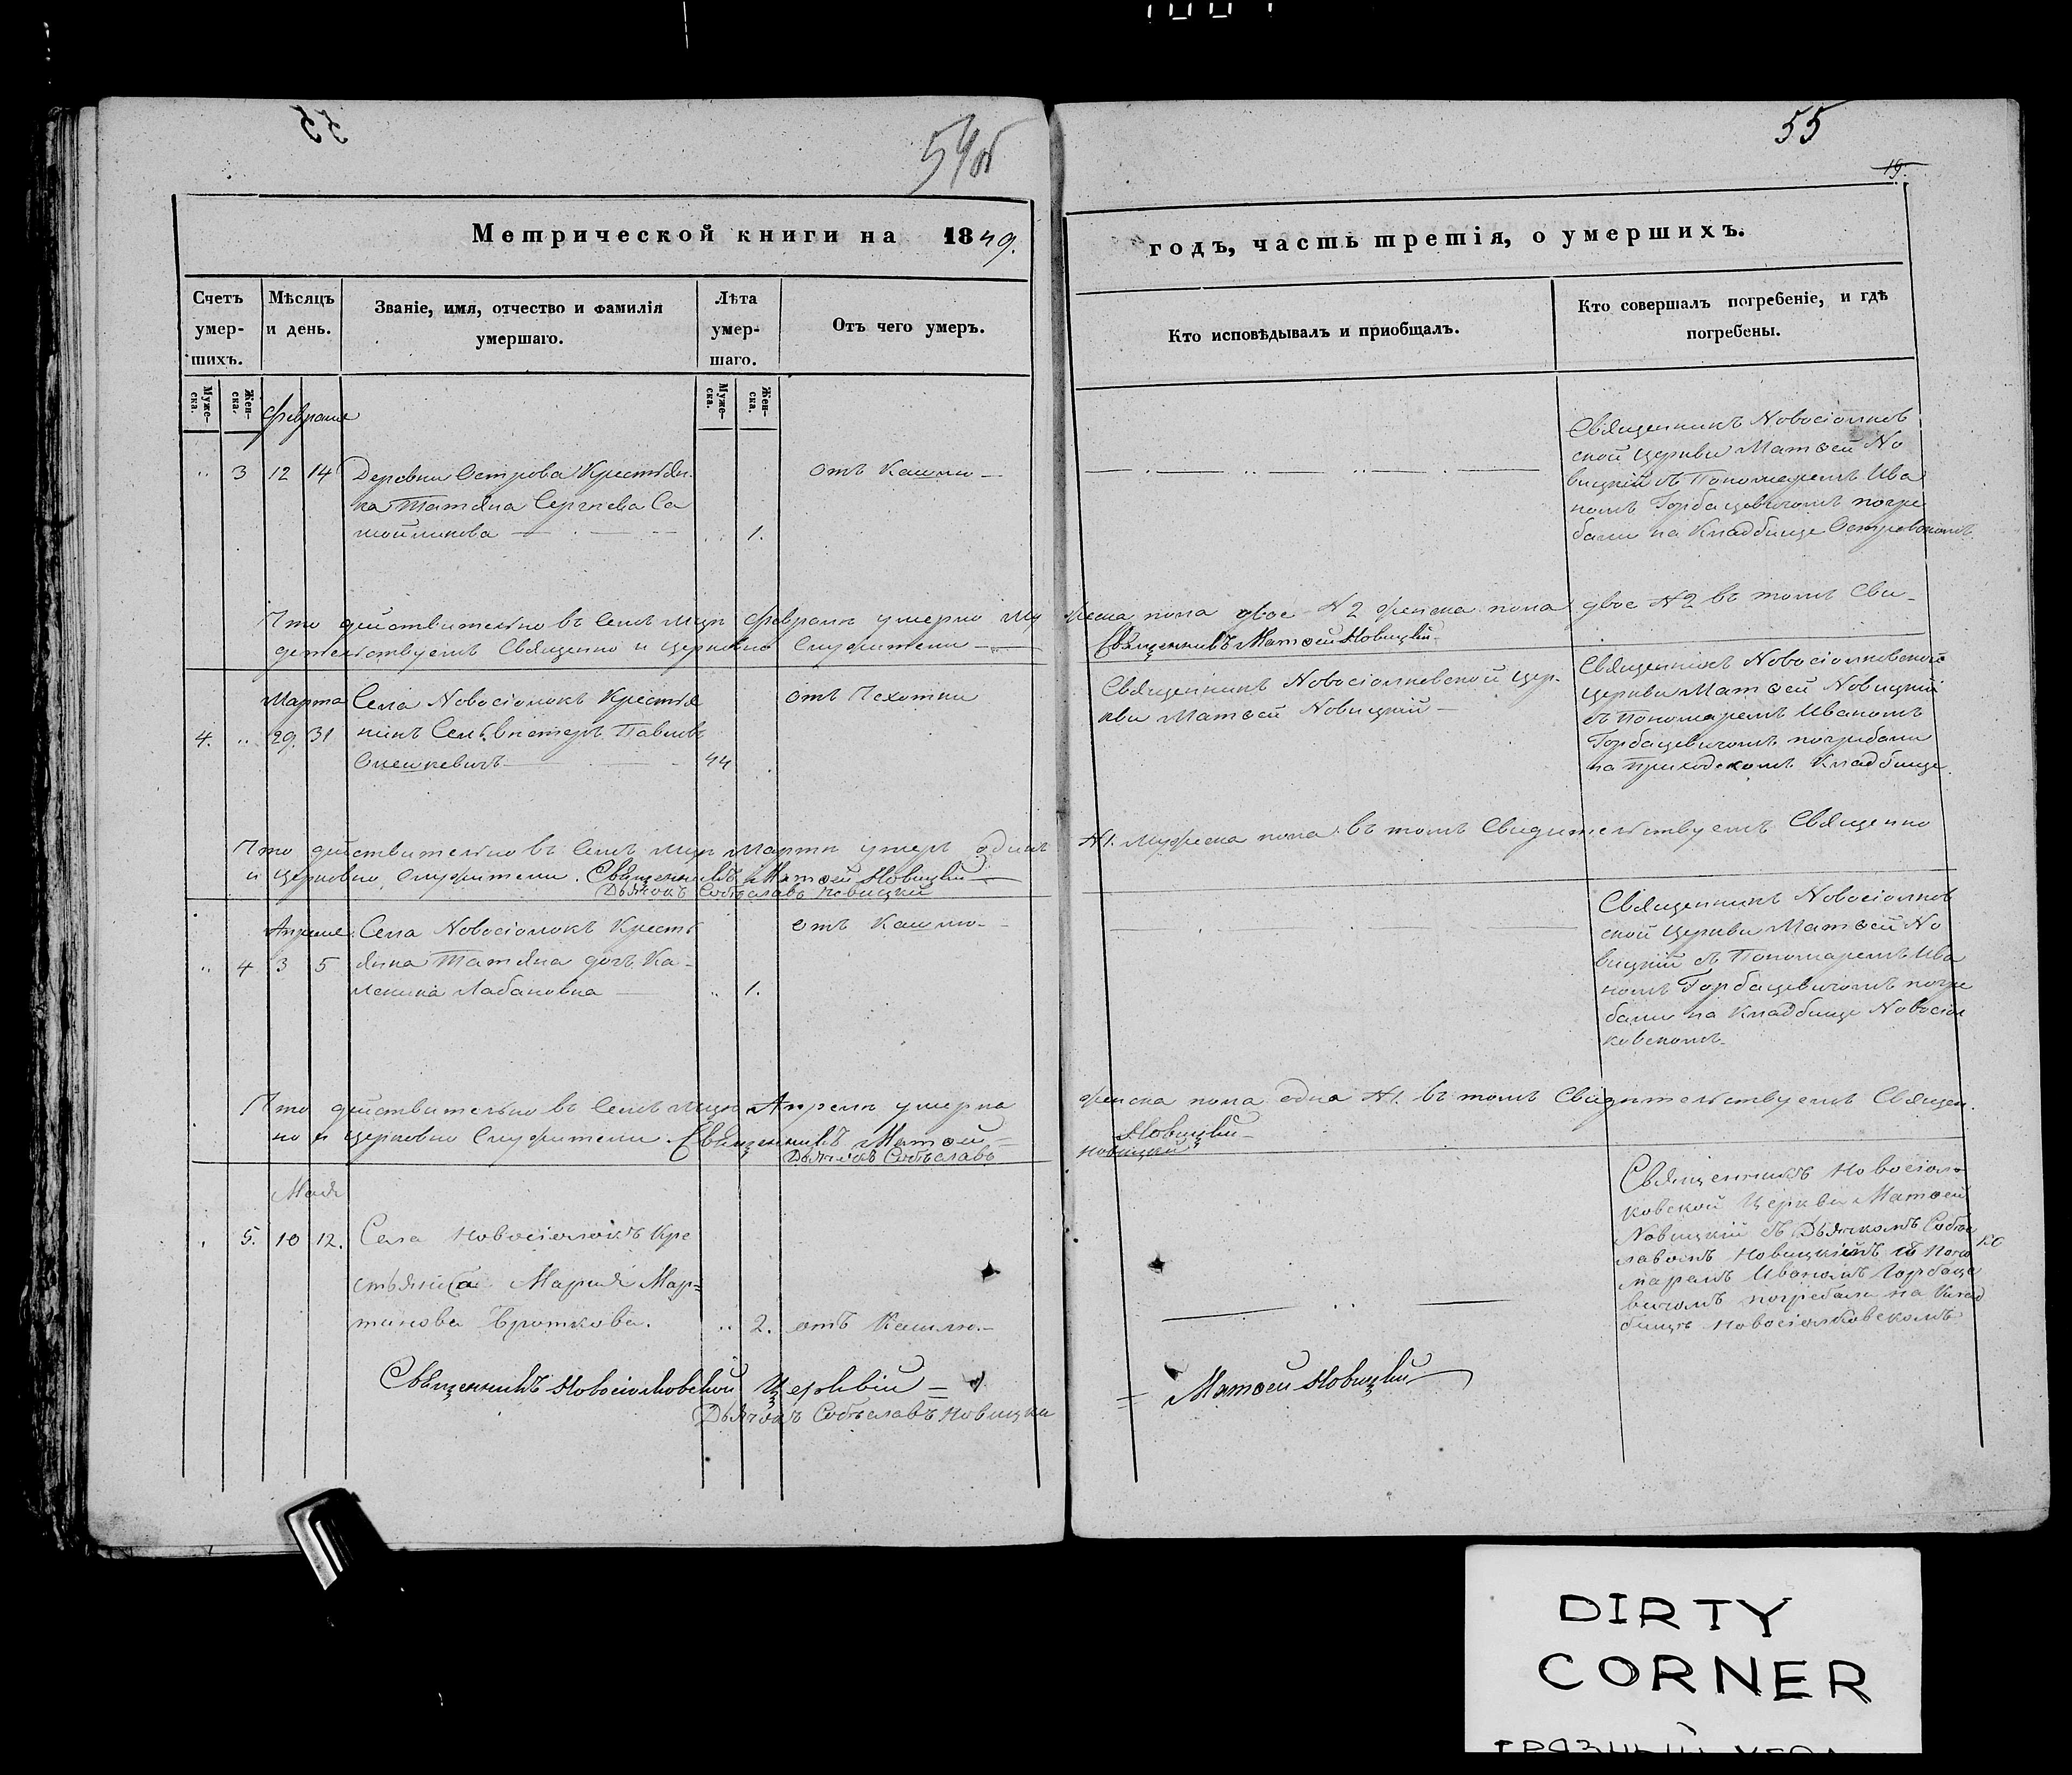 55
54об
55
19.
Метрической книги на 1849.
годъ, часть третія, о умершихъ.
Счетъ умер-шихъ.
Мѣсяцъ и день.
Званіе, имя, отчество и фамилія умершаго.
Лѣта умер-шаго.
Отъ чего умеръ.
Кто исповѣдывалъ и приобщалъ.
Кто совершалъ погребеніе, и гдѣ погребены.
Муже-ска.
Жен-ска.
Муже-ска.
Жен-ска.
Февраля
3 12 14 Деревни Острова Крестьян-
ка Татьяна Сергѣева Са
мойликова 1.
отъ Кашлю
Священникъ Новосіолков
ской Церкви Матѳей Но
вицкій съ Пономаремъ Ива
номъ Горбацевичомъ погре
бали на Кладбище Островскомъ
Что действительно въ семъ мцѣ Февралѣ умерло му
жеска пола двое №2 женска пола двое №2 въ томъ Сви-
детельствуемъ Священно и церковно Служители
Священникъ Матѳей Новицкій
Марта
4. 29. 31 Села Новосіолокъ Крестья
нинъ Сельвестеръ Павловъ
44
отъ Сухотки
Священникъ Новосіолковской Цер-
кви Матѳей Новицкій
Священникъ Новосіолковской
Церкви Матѳей Новицкій
съ Пономаремъ Иваномъ
Горбацевичомъ погребали
на приходскомъ Кладбище
Что действительно въ семъ мцѣ Мартѣ умеръ одинъ
№1. мужеска пола въ томъ Свидительствуемъ Священно
и церковно Служители. Священникъ Матѳей Новицкій
Дьячокъ Собѣславъ Новицкій
Апреля
4 3 5 Села Новосіолокъ Кресть
янка Татьяна дочь Ка-
Лабановна 1.
отъ Кашлю
Священникъ Новосіолков
ской Церкви Матѳей Но
вицкій съ Пономаремъ Ива
номъ Горбацевичомъ погре
бали на Кладбище Новосіол
ковскомъ
Что действительно въ семъ мцѣ Апрелѣ умерла
женска пола одна №1. въ томъ Свидительствуемъ Священ-
но и церковно Служители. Священникъ Матѳей
Новицкій
Дьячокъ Собѣславъ
Новицкій
Мая
5. 10 12. Села Новосіолокъ Кре
стьянка Марія Мар-
тинова Броткова. 2.
отъ Кашлю
Священникъ Новосіол-
ковской Церкви Матѳей
Новицкій съ Дьячкомъ Собѣ
славомъ Новицкимъ и Поно
маремъ Иваномъ Горбаце
вичомъ погребали на Клад
бищѣ Новосіолковскомъ
Священникъ Новосіолковской Церквіи
= Матѳей Новицкій
Дьячокъ Собѣславъ Новицкій
DIRTY
CORNER
ГРЯЗНЫЙ УГОЛ